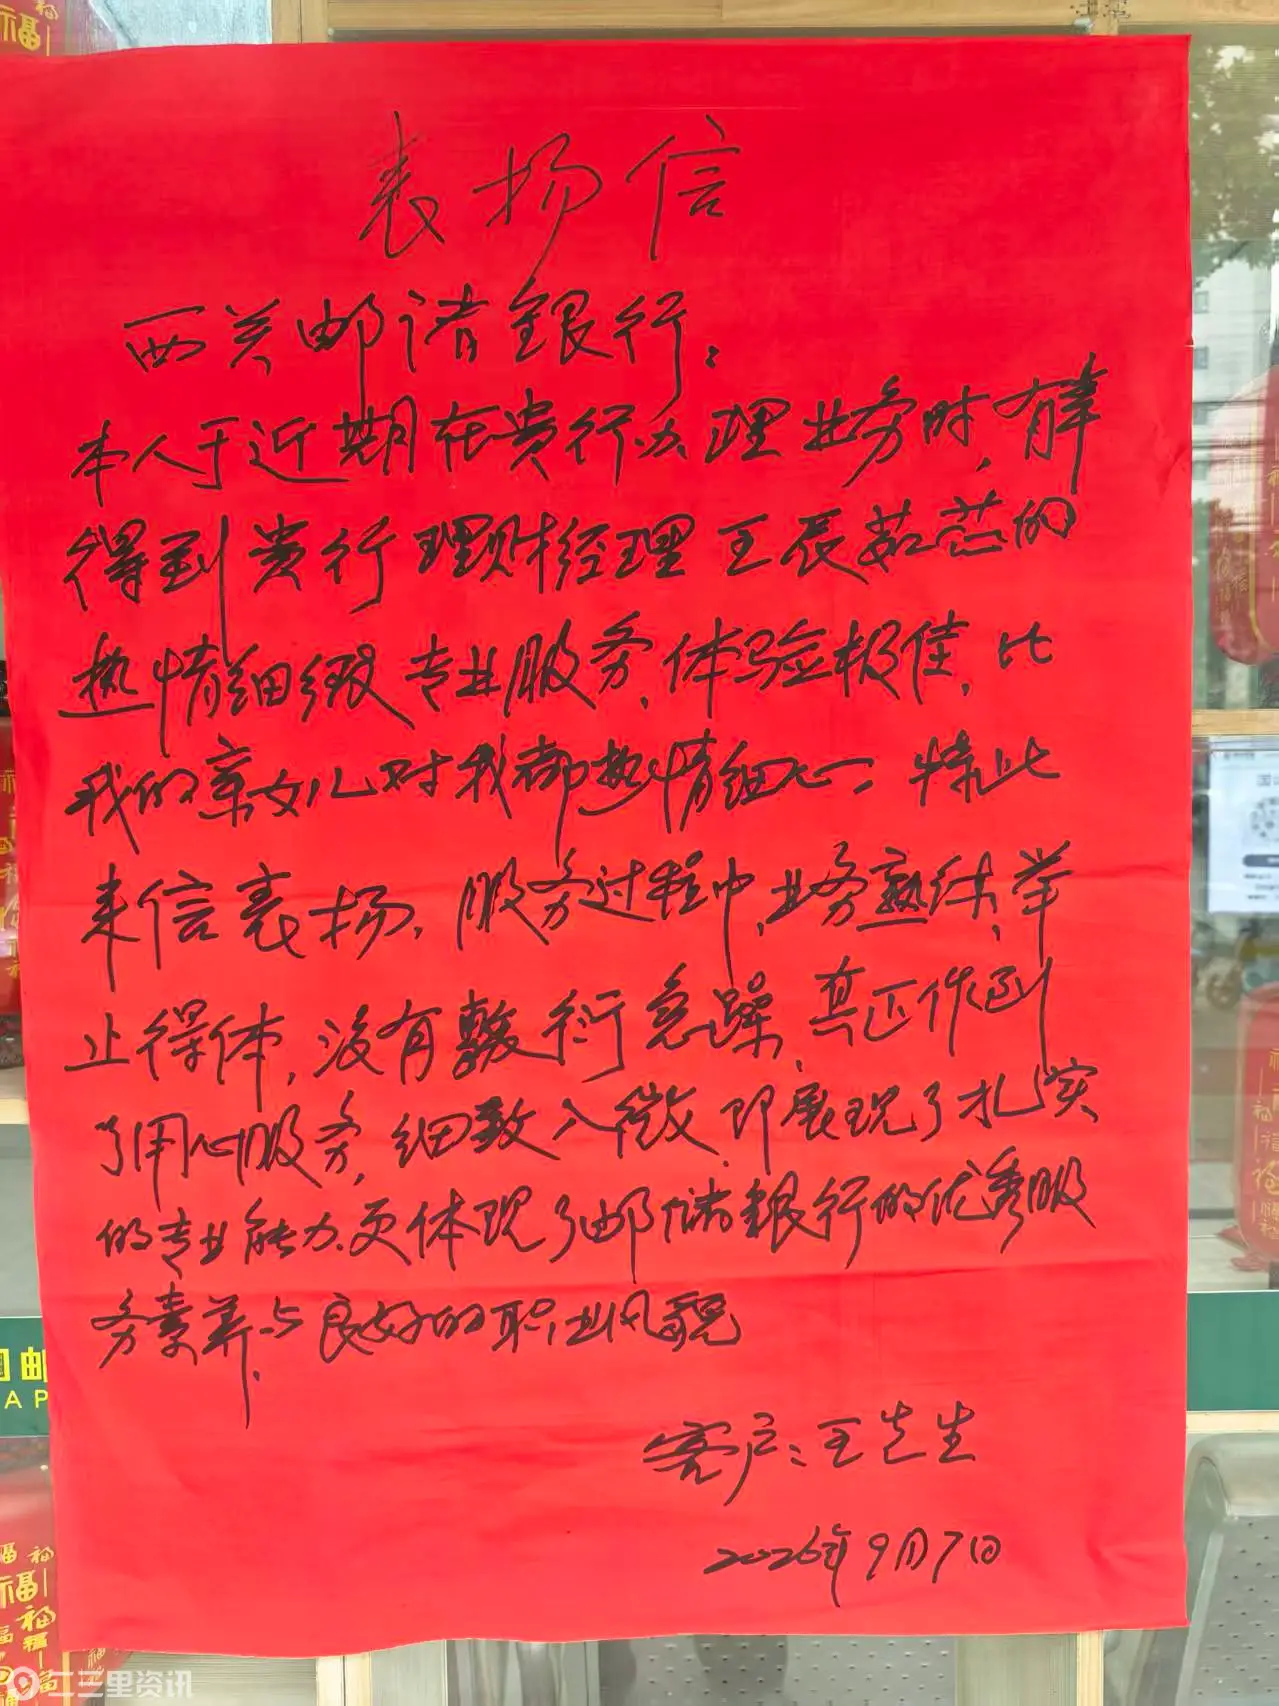 表扬信
西关邮储银行：
本人于近期在贵行办理业务时，有幸
得到贵行理财经理王辰茹芯的
热情细致专业服务，体验极佳，比
我的亲女儿对我都热情细心。特此
来信表扬，服务过程中，业务熟练，举
止得体，没有敷衍急躁，真正作到
了用心服务，细致入微，即展现了扎实
的专业能力、更体现了邮储银行的优秀服
务素养与良好的职业风貌
客户：王先生
2026年9月7日
二三里资讯